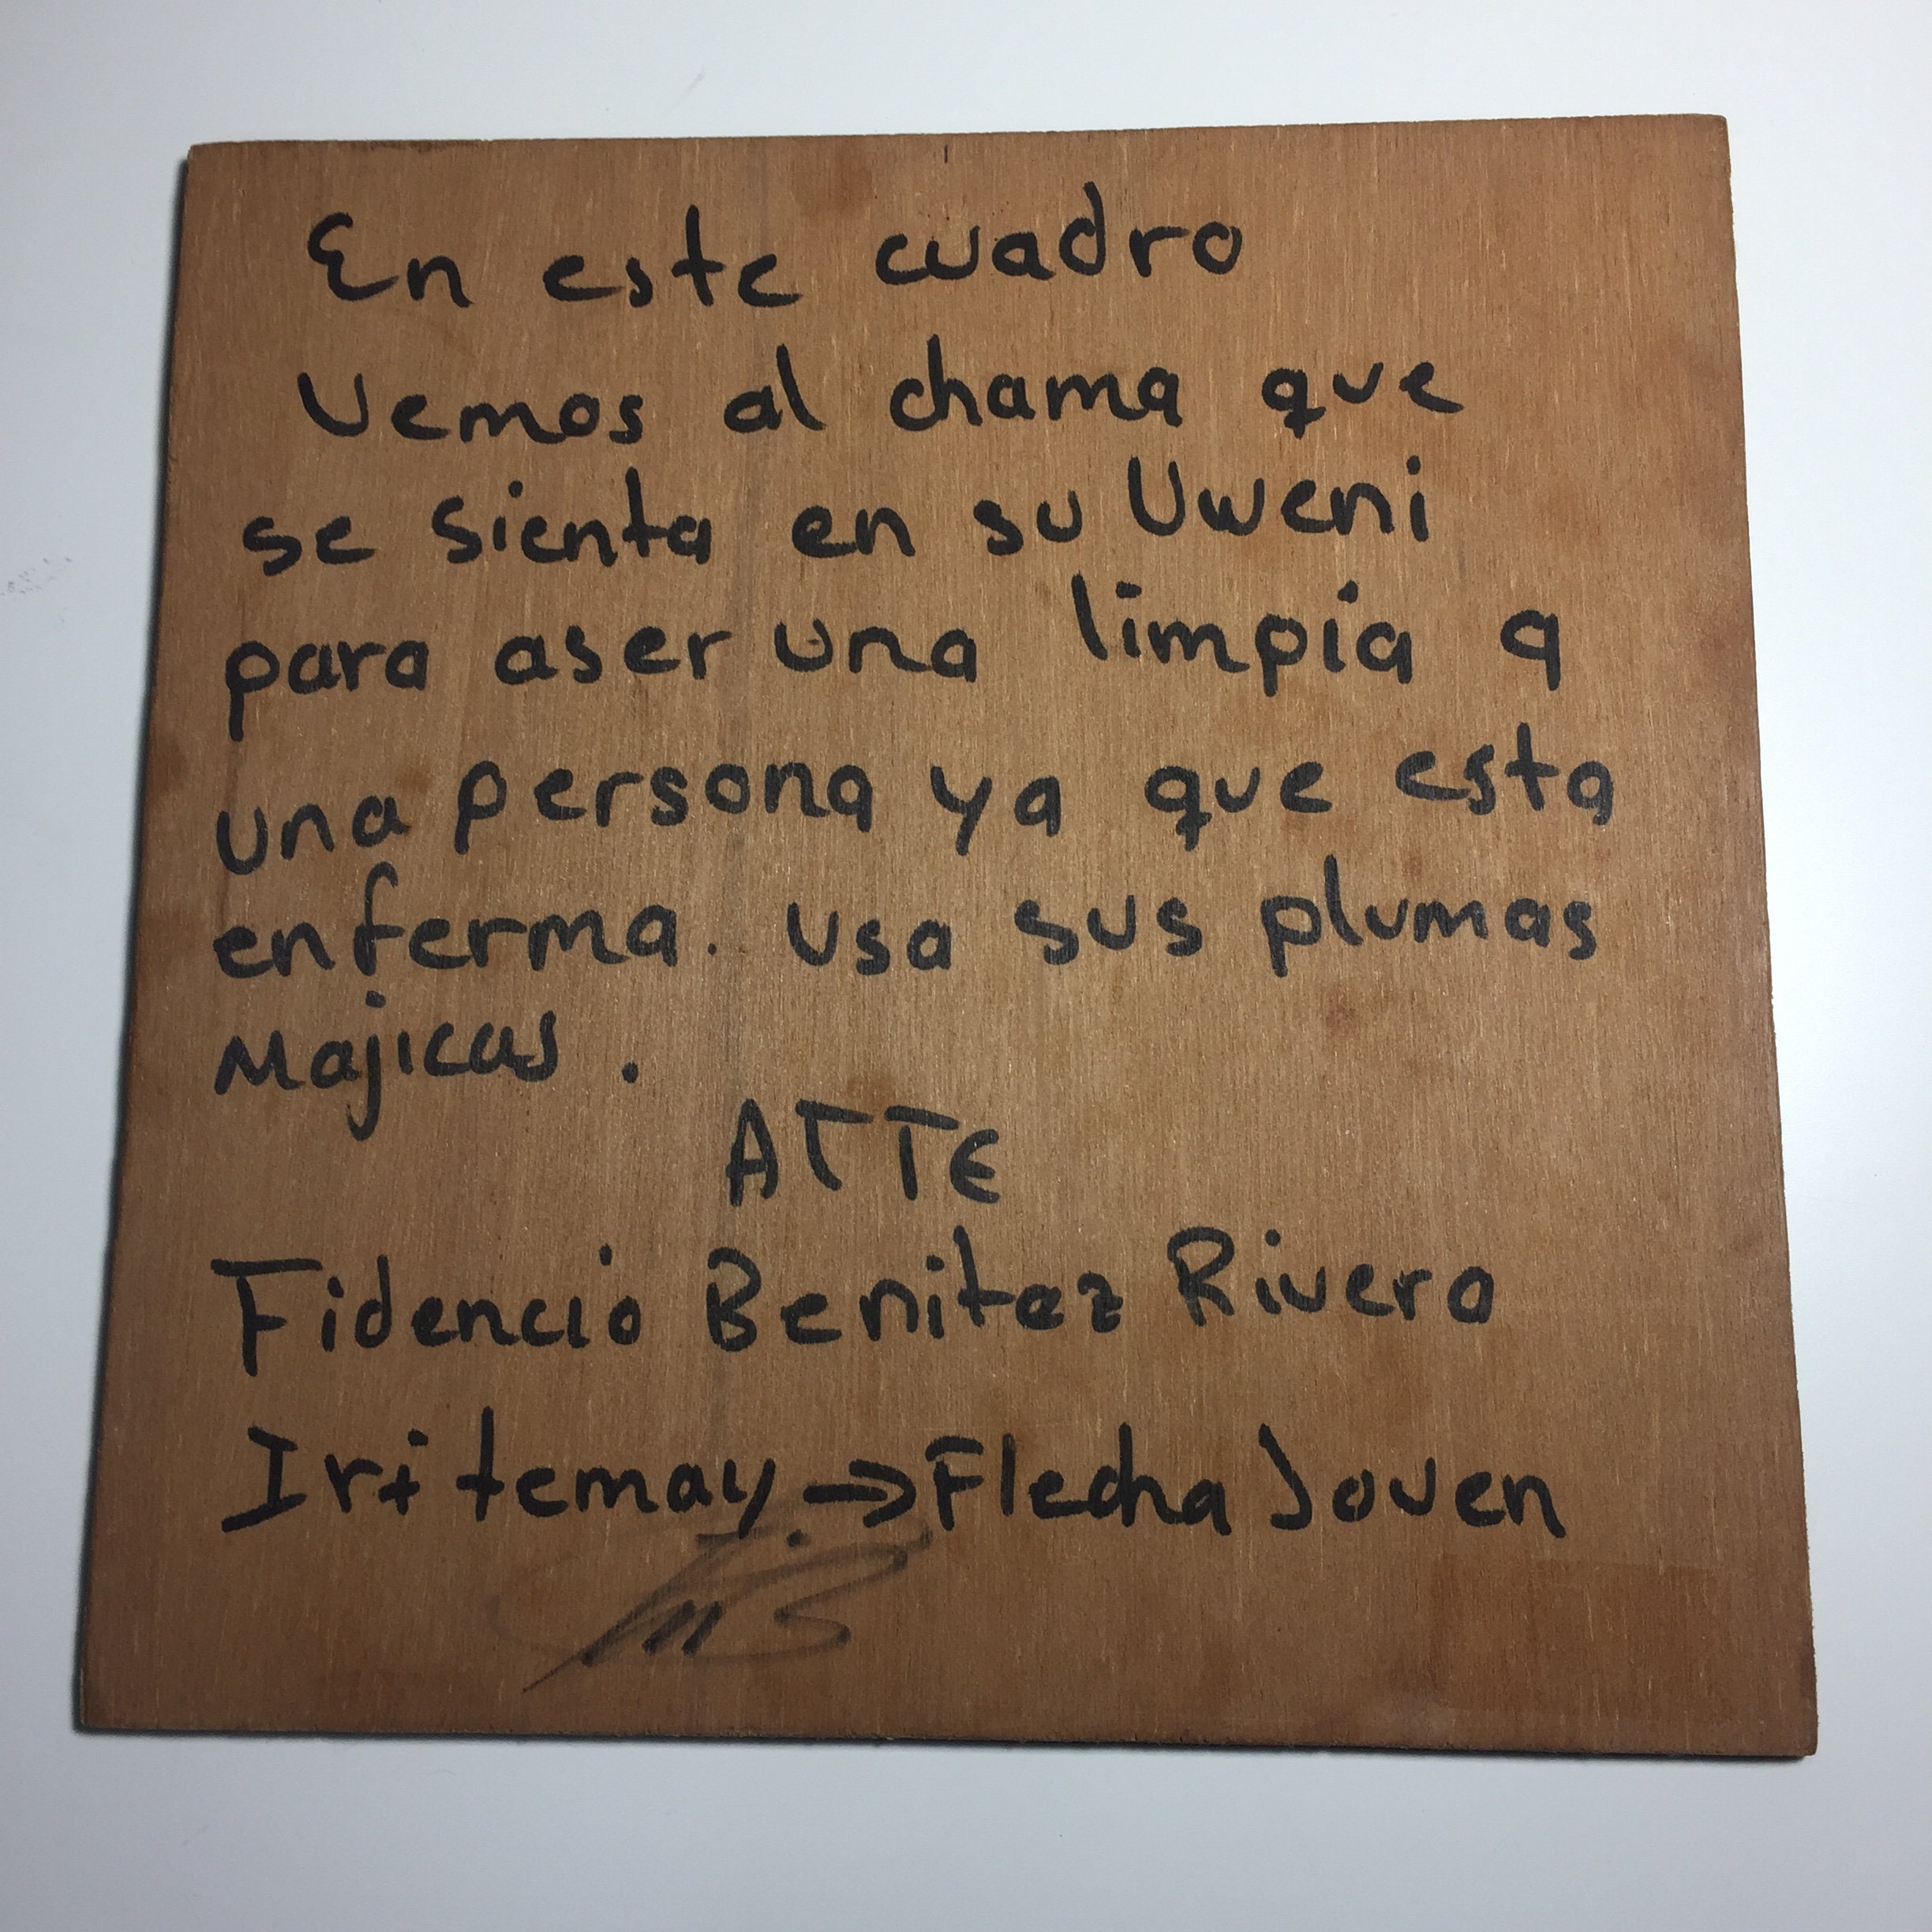 En este cuadro
Vemos al chama que
se sienta en su Uweni
para aser una limpia a
una persona ya que esta
enferma. usa sus plumas
Majicas.
ATTE
Fidencio Benitez Rivera
Iri temay. → Flecha Joven